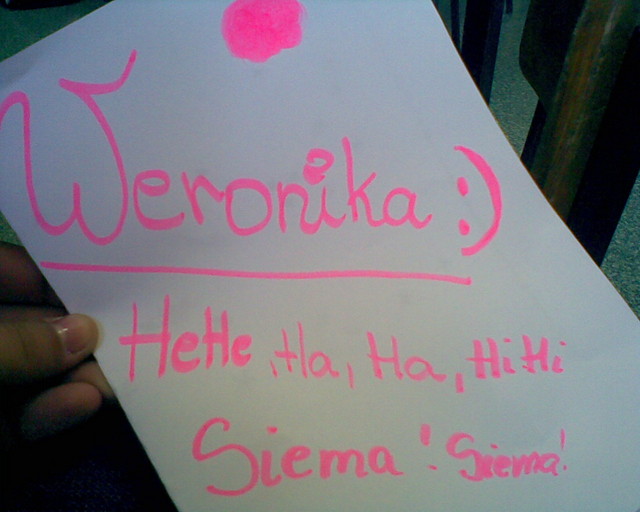 Weronika :)
HeHe, Ha, Ha, HiHi
Siema! Siema!